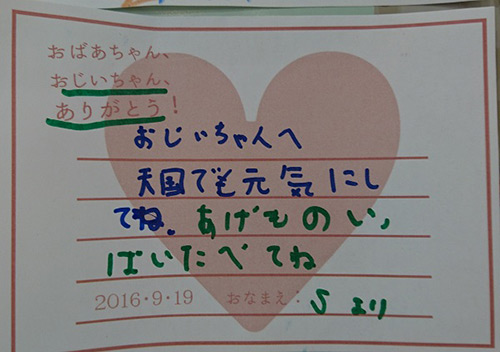 おばあちゃん、
おじいちゃん、
ありがとう!
おじいちゃんへ
天国でも元気にし
てね。あげものい、
ぱいたべてね
2016・9・19 おなまえ: Sより